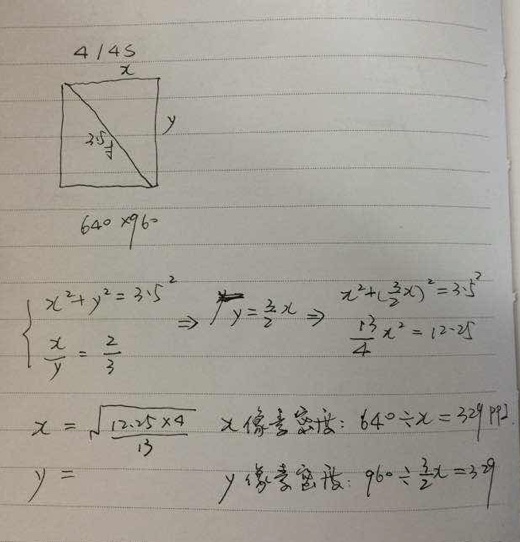 4/4S
x
y
3.5寸
640×960
x²+y²=3.5²
x/y = 2/3
⇒ y=3/2x ⇒
x²+(3/2x)²=3.5²
13/4x²=12.25
x = √(12.25×4/13) x像素密度: 640÷x=329ppi
y = y像素密度: 960÷3/2x=329